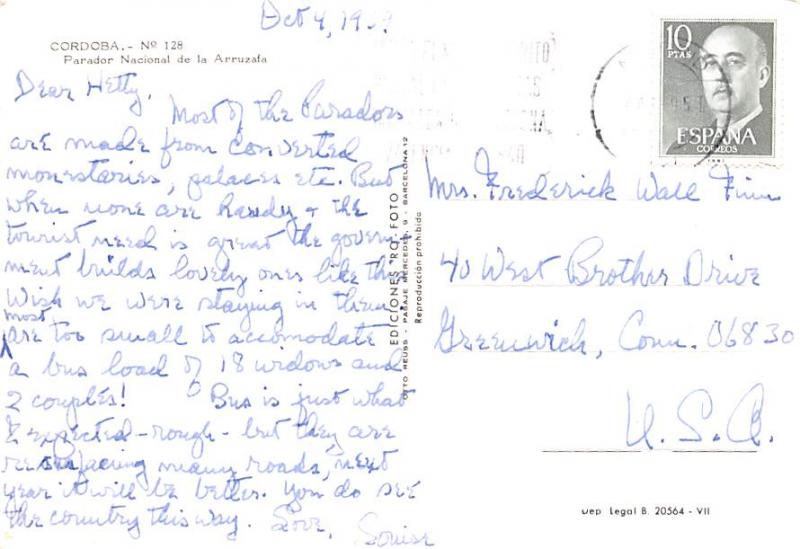 Oct 4, 19
CORDOBA.- Nº 128
Parador Nacional de la Arruzafa
Dear Hetty,
Most of the Paradors
are made from converted
monestaries, palaces etc. But
when none are handy & the
tourist need is great the govern-
ment builds lovely ones like this
Wish we were staying in them
most
are too small to accomodate
a bus load of 18 widows and
2 couples! Bus is just what
I expected - rough - but they are
resurfacing many roads, next
year it will be better. You do see
the country this way. Love,
Louise
EDICIONES "RO FOTO"
OTTO REUSS - PASAJE MERCEDES, 9 - BARCELONA 12
Reproducción prohibida
10
PTAS
ESPAÑA
CORREOS
Mrs. Frederick Wall Finn
40 West Brother Drive
Greenwich, Conn. 06830
U.S.A.
Dep. Legal B. 20564 - VII